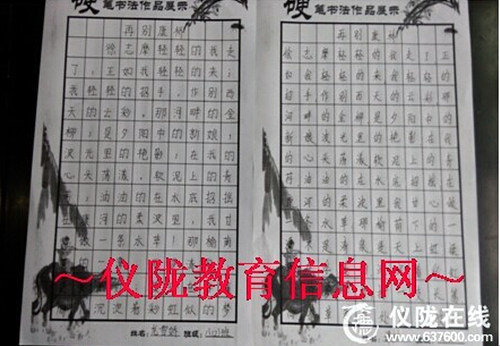 硬笔书法作品展示
再别康桥
徐志摩轻轻的我走
了，正如我轻轻的来；
我轻轻的招手，作别西
天的云彩。那河畔的金
柳，是夕阳中的新娘；
波光里的艳影，在我的
心头荡漾。软泥上的青
油油的在水底招摇
的柔波里，我甘
做一条水草！那榆荫
沉淀着彩虹似的梦
姓名： 班级：
硬笔书法作品展示
再别康桥
徐志摩轻轻的我走了正
如我轻轻的来我轻轻的
招手作别西天的云彩那
河畔的金柳是夕阳中的
新娘波光里的艳影在我
的心头荡漾软泥上的青
荇油油的在水底招摇在
的柔波里
水草那榆荫下的一
是天上虹
～仪陇教育信息网～
仪陇在线
www.637600.com